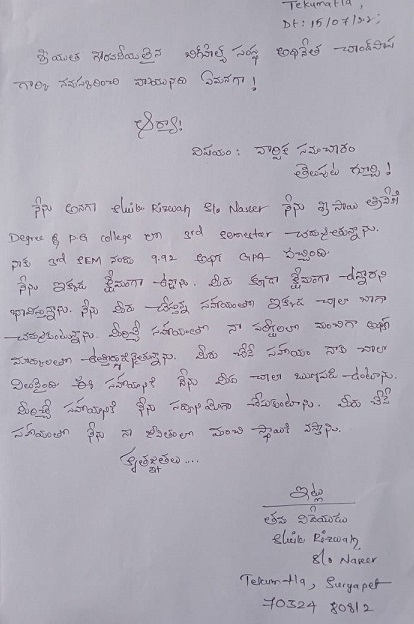 Tekumatla,
Dt: 15/07/22;
శ్రీయుత గౌరవనీయులైన బిగ్‌హెల్ప్ సంస్థ అధినేత చాంద్‌పాష
గార్కి నమస్కరించి వ్రాయునది ఏమనగా!
ఆర్యా!
విషయం: వార్షిక సమాచారం
తెలుపుట గూర్చి!
నేను అనగా Shaik Rizwan S/o Naseer నేను శ్రీ సాయి త్రివేణి
Degree & PG college లో 3rd Semester చదువుతున్నాను.
నాకు 3rd SEM నందు 9.92 GPA వచ్చింది.
నేను ఇక్కడ క్షేమంగా ఉన్నాను. మీరు కూడా క్షేమంగా ఉన్నారని
భావిస్తున్నాను. నేను మీరు చేస్తున్న సహాయంతో ఇక్కడ చాలా బాగా
చదువుకుంటున్నాను. మీరిచ్చే సహాయంతో నా పరీక్షలలో మంచిగా
మార్కులతో ఉత్తీర్ణుడనౌతున్నాను. మీరు చేసే సహాయం నాకు చాలా
విలువైంది ఈ సహాయానికి నేను మీకు చాలా ఋణపడి ఉంటాను.
మీరిచ్చే సహాయానికి నేను సద్వినియోగం చేసుకుంటాను. మీరు చేసే
సహాయంతో నేను నా జీవితంలో మంచి స్థాయికి వస్తాను.
కృతజ్ఞతలు....
ఇట్లు
తమ విధేయుడు
Shaik Rizwan
S/o Naseer
Tekumatla, Suryapet
70324 80812